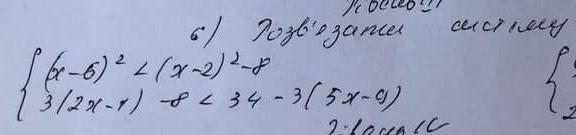 б) Розв'язати систему
{ (x-6)² < (x-2)² -8
3(2x-1) -8 < 34 -3(5x-9)